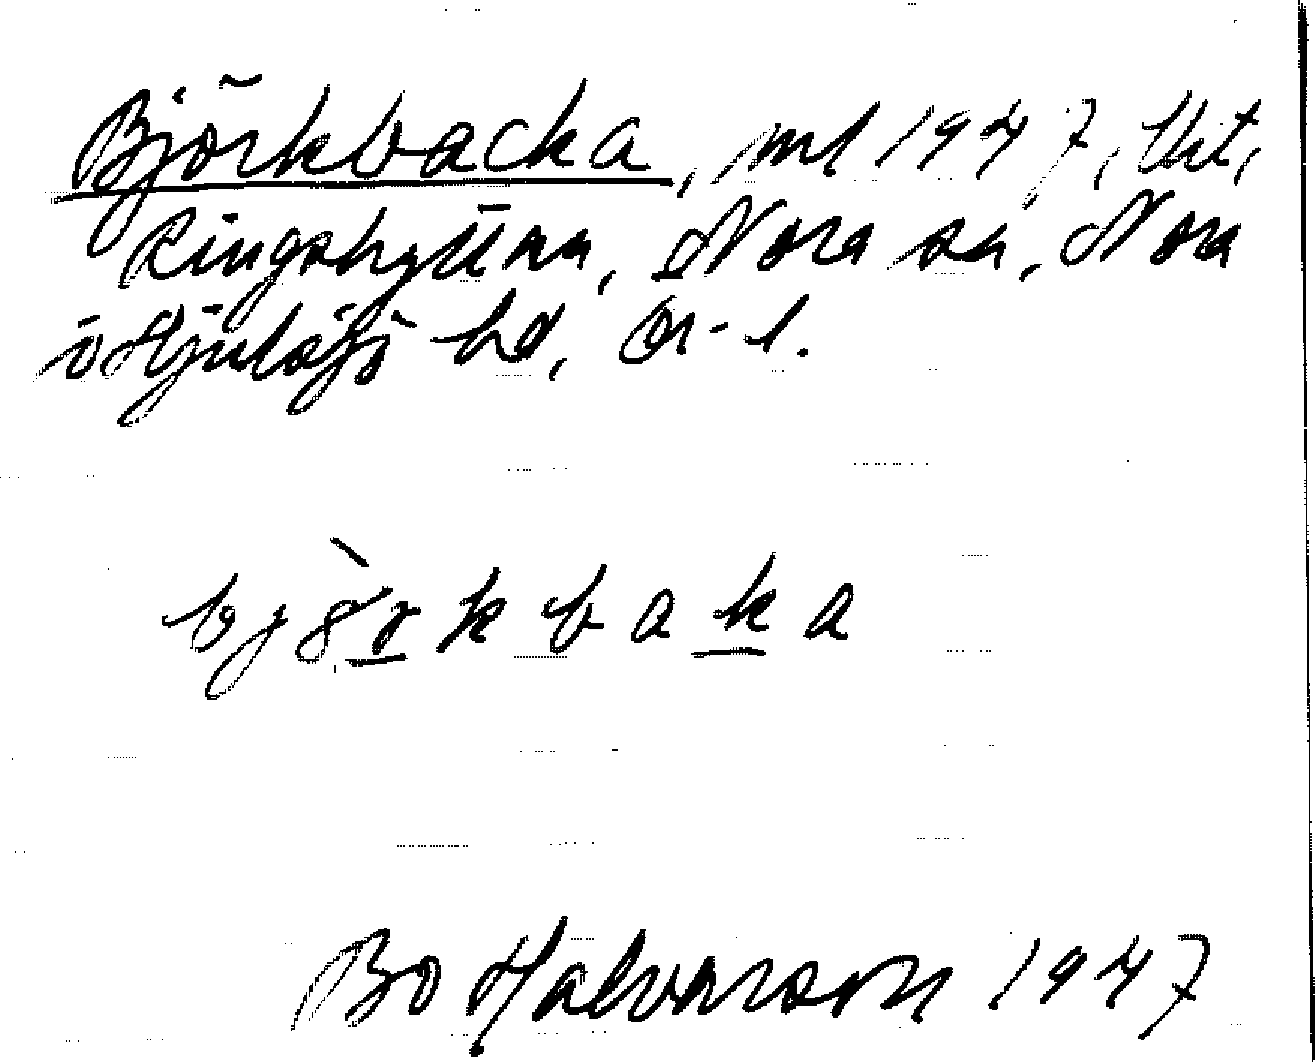 Björkbacka, ml 1947, Vit,
Ringshyttan, Nora sn, Nora
o Hjulsjö hd, Ör-l.
björkbaka
Bo Halvarson 1947